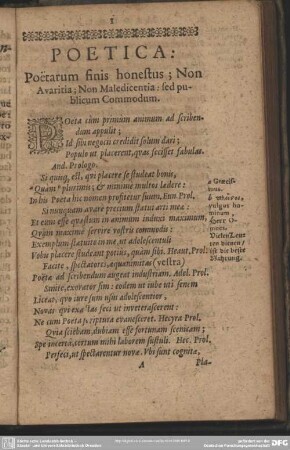 1
POETICA:
Poëtarum finis honestus; Non
Avaritia; Non Maledicentia: sed pu-
blicum Commodum.
POeta cùm primùm animum ad scriben-
dum appulit;
Id sibi negocii credidit solum dari;
Populo ut placerent, quas fecisset fabulas.
And. Prologo.
Si quisq, est, qui placere se studeat bonis,
Quàm plurimis; & minimè multos lædere:
In his Poëta hic nomen profitetur suum, Eun. Prol.
Si nunquam avarè precium statui arti meæ:
Et eum esse quæstum in animum induxi maxumum,
Quàm maxime servire vostris commodis:
Exemplum statuite in me ut adolescentuli
Vobis placere studeant potiùs, quàm sibi. Heaut. Prol.
Facite, spectatores, æquanimitas (vestra)
Poëtæ ad scribendum augeat industriam. Adel. Prol.
Sinite, exorator sim: eodem ut iure uti senem
Liceat, quo iure sum usus adolescentior,
Novas qui exactas feci ut inveterascerent:
Ne cum Poeta scriptura evanesceret. Hecyra Prol.
Quia scibam, dubiam esse fortunam scenicam;
Spe incertâ, certum mihi laborem sustuli. Hec. Prol.
Perfeci, ut spectarentur novæ. Ubi sunt cognitæ,
A
Pla-